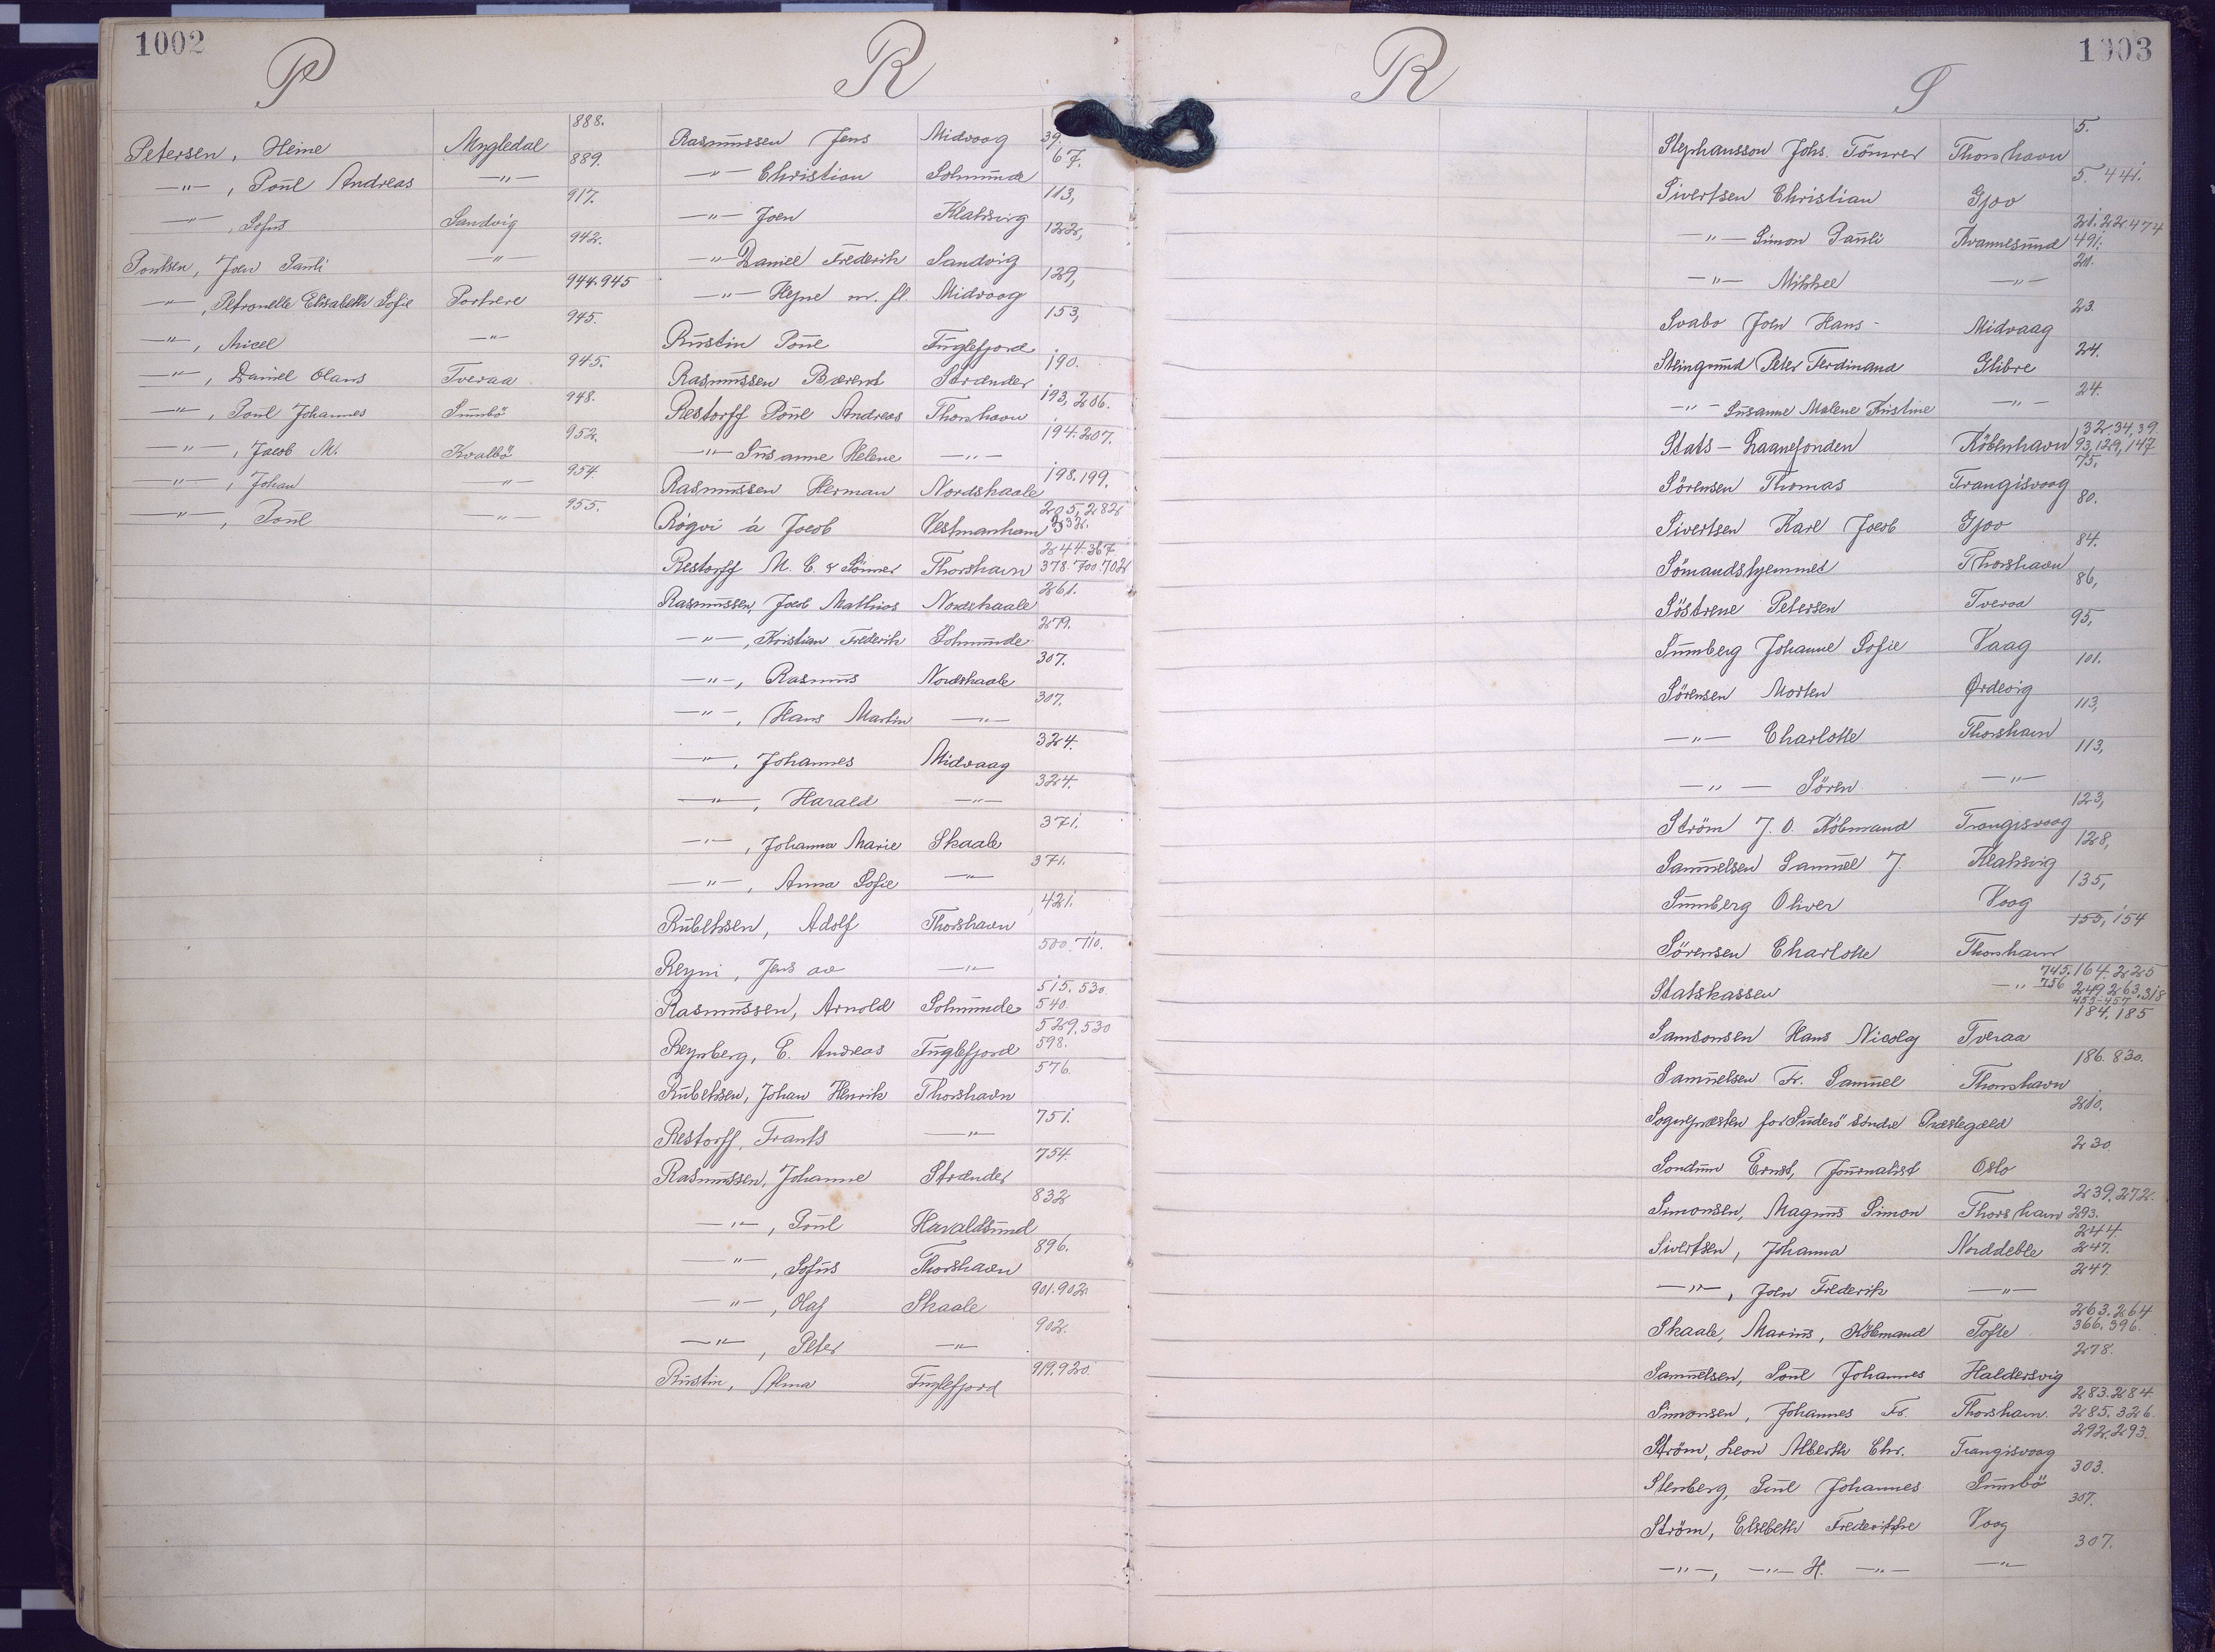 1002
P
Petersen, Heine Mygledal 888.
—"—, Poul Andreas —"— 889.
—"—, Sofus Sandvig 917.
Poulsen, Joen Pauli —"— 942.
—"—, Petronelle Elisabeth Sofie Porkere 944.945
—"—, Micel —"— 945.
—"—, Daniel Olaus Tveraa 945.
—"—, Poul Johannes Sumbö 948.
—"—, Jacob M. Kvalbö 952.
—"—, Johan —"— 954.
—"—, Poul —"— 955.
R
Rasmussen Jens Midvaag 39.
—"— Christian Solmunde 67.
—"— Joen Klaksvig 113,
—"— Daniel Frederik Sandvig 122,
—"— Hejne m. fl. Midvaag 129,
Rustin Poul Fuglefjord 153,
Rasmussen Berent Strænder 190.
Restorff Poul Andreas Thorshavn 193, 206.
—"— Susanne Helene —"— 194.207.
Rasmussen Herman Nordskaale 198.199.
Rógvi á Jacob Vestmanhavn 205,282 332.
Restorff M. C. & Sönner Thorshavn 244.367 378.700.702
Rasmussen, Jacob Mathias Nordskaale 261.
—"—, Kristian Frederik Solmunde 279.
—"—, Rasmus Nordskaale 307.
—"—, Hans Martin —"— 307.
—"—, Johannes Midvaag 324.
—"—, Harald —"— 324.
—"—, Johanna Marie Skaale 371.
—"—, Anna Sofie —"— 371.
Rubeksen, Adolf Thorshavn 421.
Reyni, Jens av —"— 500.710.
Rasmussen, Arnold Solmunde 515.530. 540.
Reynberg, E. Andreas Fuglefjord 529.530 598.
Rubeksen, Johan Henrik Thorshavn 576.
Restorff, Frants —"— 751.
Rasmussen, Johanne Strænder 754.
—"—, Poul Haraldsund 832
—"—, Sofus Thorshavn 896.
—"—, Olaf Skaale 901.902.
—"—, Peter —"— 902.
Rustin, Alma Fuglefjord 919.920.
1003
R
S
Stephansson Johs. Tömrer Thorshavn 5.
Sivertsen Christian Gjov 5. 441.
—"— Simon Pauli Kvannesund 21.22 474 491.
—"— Mikkel —"— 21.
Svabo Joen Hans- Midvaag 23.
Steingrund Peter Ferdinand Glibre 24.
—"— Susanne Malene Kristine —"— 24.
Stats-Laanefonden Köbenhavn 32.34,39. 93,129,147
Sörensen Thomas Trangisvaag 75.
Sivertsen Karl Jacob Gjov 80.
Sömandshjemmet Thorshavn 84.
Söstrene Petersen Tveraa 86,
Sumberg Johanne Sofie Vaag 95,
Sörensen Morten Ørdevig 101.
—"— Charlotte Thorshavn 113,
—"— Sören —"— 113,
Ström J. O. Köbmand Trangisvaag 123,
Samuelsen Samuel J. Klaksvig 128,
Sumberg Oliver Vaag 135,
Sörensen Charlotte Thorshavn 155, 154
Statskassen —"— 745. 164.225 756 249.263.318 455-457
Samsonsen Hans Nicolaj Tveraa 184.185
Samuelsen Fr. Samuel Thorshavn 186.830.
Sognepræsten for Suderö söndre Præstegæld 210.
Sondum Ernst, Journalist Oslo 230.
Simonsen, Magnus Simon Thorshavn 239.272. 293.
Sivertsen, Johanna Norddeble 244. 247.
—"—, Joen Frederik —"— 247.
Skaale, Marius, Köbmand Tofte 263.264 366.396.
Samuelsen, Poul Johannes Haldersvig 278.
Simonsen, Johannes Fr. Thorshavn. 283.284. 285.326.
Ström, Leon Alberth Chr. Trangisvaag 292.293.
Stenberg, Poul Johannes Sumbö 303.
Ström, Elsebeth Frederikke Vaag 307.
—"—, —"— H. —"— —"— 307.